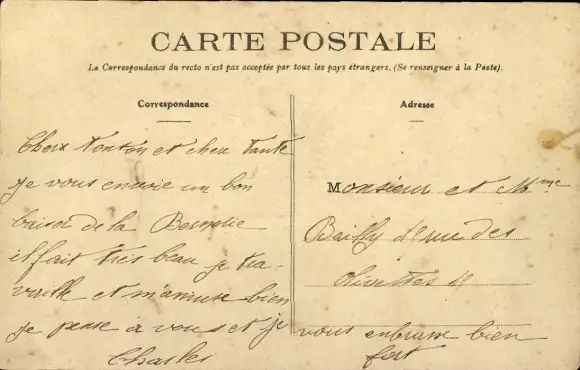 CARTE POSTALE
La Correspondance du recto n'est pas acceptée par tous les pays étrangers. (Se renseigner à la Poste).
Correspondance
Cher Tonton et cher Tante
je vous envoie un bon
baiser de la
il fait très beau je tra-
vaille et m'amuse bien
je pense à vous et je vous embrasse bien
fort
Charles
Adresse
Monsieur et Mme
Bailly rue des
Olivettes